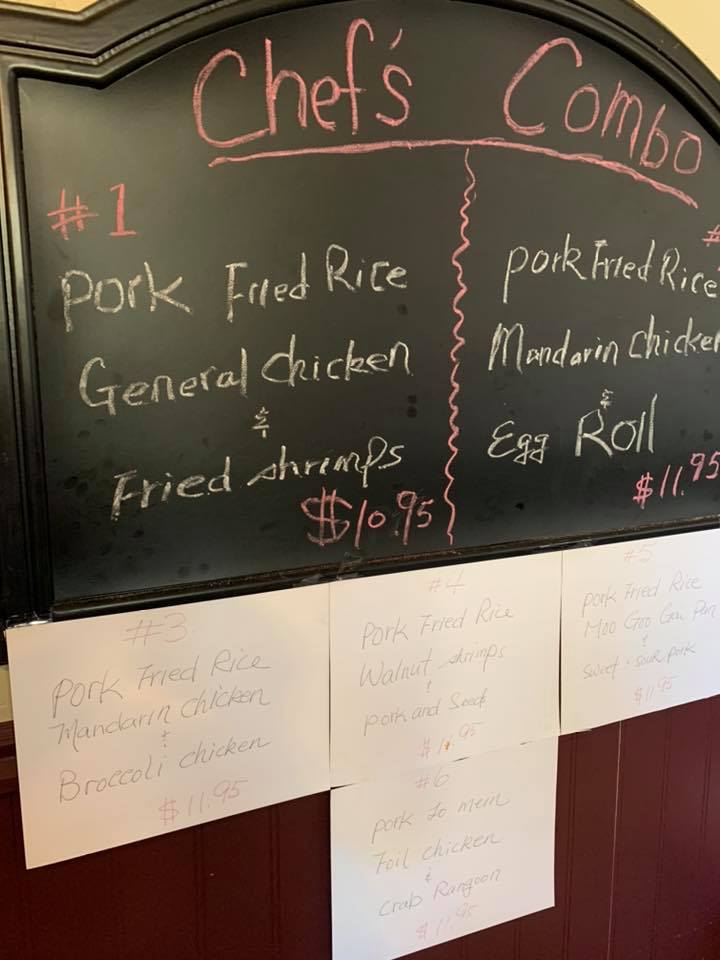 Chef's Combo
#1
Pork Fried Rice
General Chicken
&
Fried shrimps
$10.95
#
Pork Fried Rice
Mandarin Chicken
&
Egg Roll
$11.95
#3
Pork Fried Rice
Mandarin chicken
&
Broccoli chicken
$11.95
#4
Pork Fried Rice
Walnut shrimps
&
Pork and Seed
$11.95
#5
Pork Fried Rice
Moo Goo Gai Pan
&
Sweet & sour pork
$11.95
#6
Pork Lo mein
Foil chicken
&
Crab Rangoon
$11.95